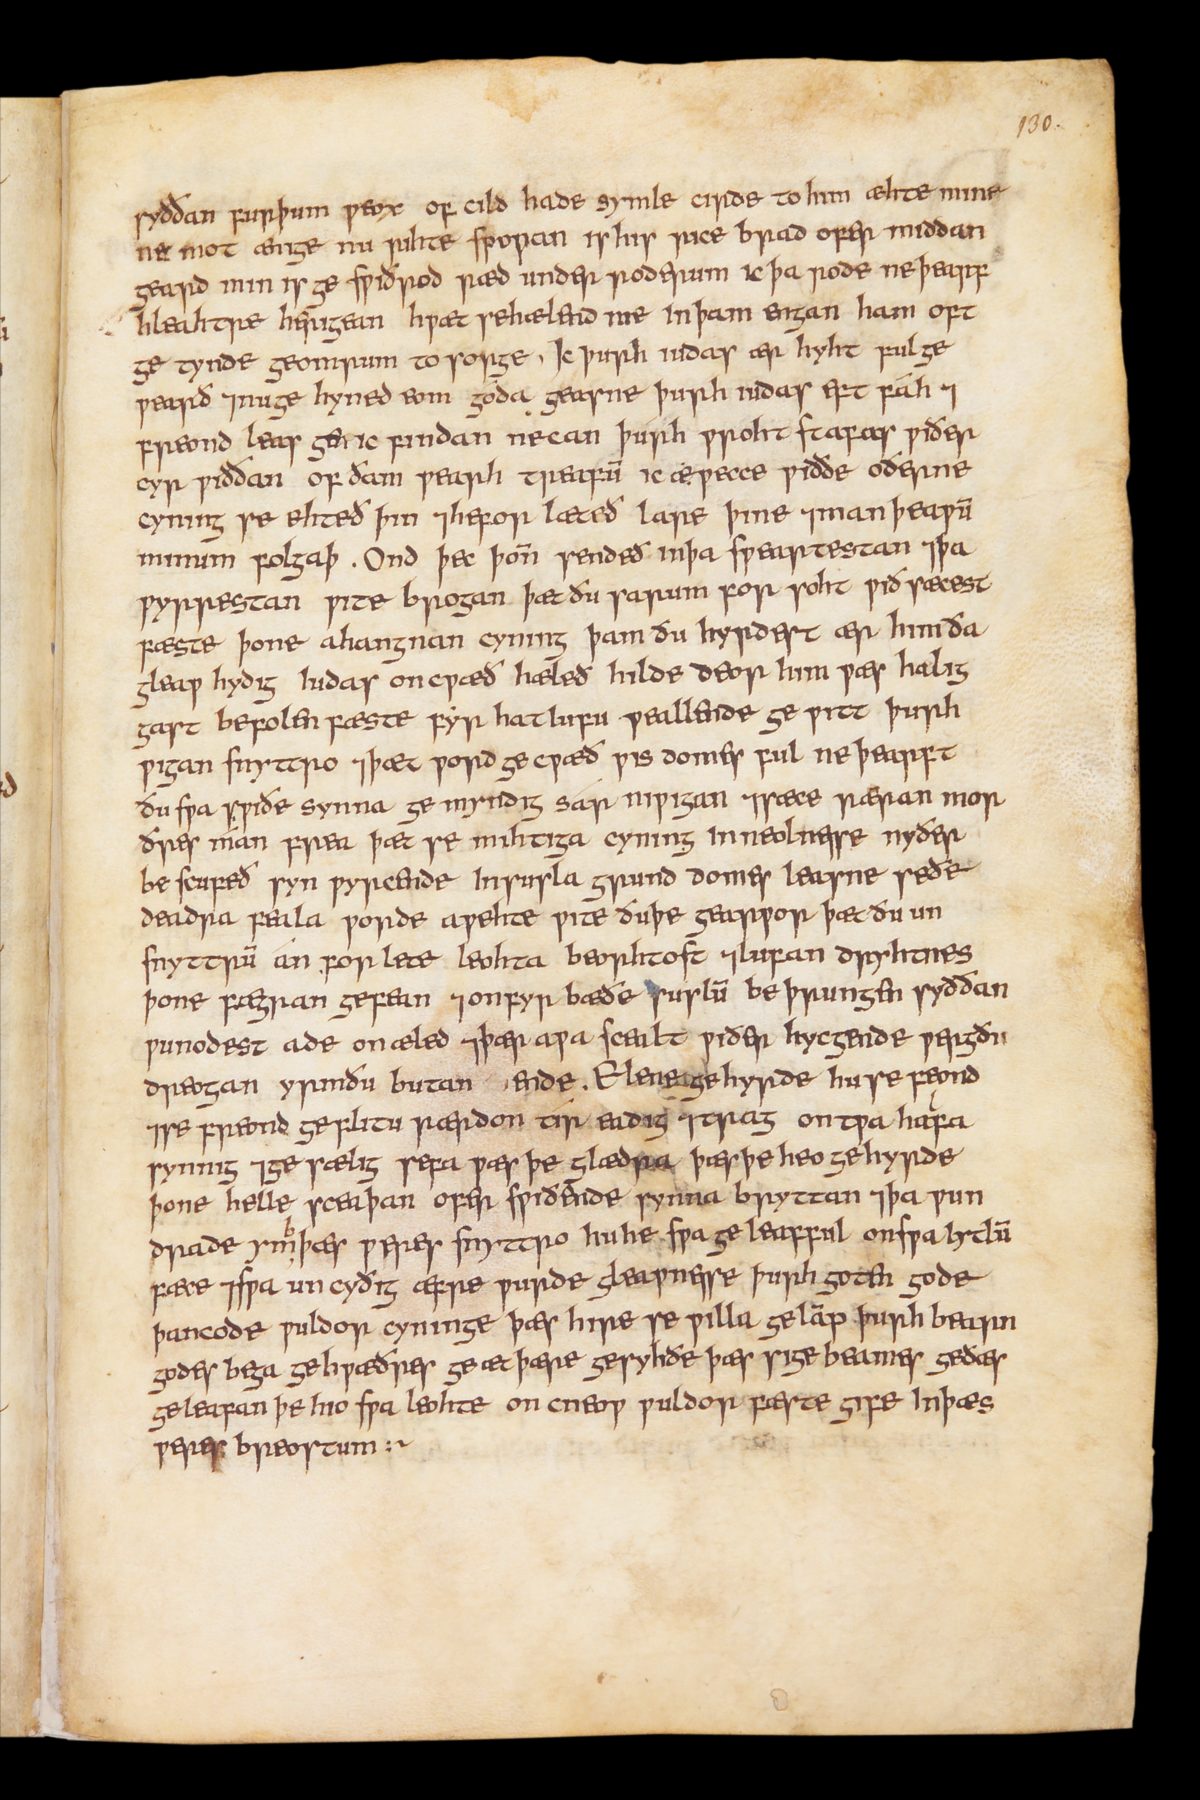 130.
syððan furþum ƿeox of cild hade symle cirde to him æhte mine
ne mot ænige nu rihte sƿoƿan is his rice brad ofer middan
geard min is ge sƿiðrod ræd under roderum ic þa rode ne þearf
hleahtre herigean hƿæt sehælend me inþam engan ham oft
ge tynde geomrum to sorge · Ic þurh iudas ær hyht ful ge
ƿearð ⁊nu ge hyned eom goda geasne þurh iudas eft fáh ⁊
freond leas gen ic findan ne can þurh ƿroht stafas ƿiðer
cyr ƿiððan of ðam ƿearh treafū ic aƿecce ƿiððe oðerne
cyning se ehteð þin ⁊hefor læteð lare þine ⁊man þeaƿū
minum folgaþ . Ond þec þoñ sendeð inþa sƿeartestan ⁊þa
ƿyrrestan ƿite brogan þæt ðu sarum for soht ƿið sæcest
fæste þone ahangnan cyning þam ðu hyrdest ær him ða
gleaƿ hydig Iudas oncƿæð hæleð hilde deor him ƿæs halig
gast befolen fæste fýr hat lufu ƿeallende ge ƿitt þurh
ƿigan snyttro ⁊þæt ƿord ge cƿæð ƿis domes ful ne þearft
ðu sƿa sƿiðe synna ge myndig sár niƿigan ⁊sæce ræran mor
ðres mán frea þæt se mihtiga cyning In neolnesse nyðer
be scufeð syn ƿyrcende In susla grund domes leasne seðe
deadra feala ƿorde aƿehte ƿite ðuþe gearƿor þæt ðu un
snyttrū án for lete leohta beorhtost ⁊lufan dryhtnes
þone fægran gefean ⁊onfyr bæðe suslū be þrungen syððan
ƿunodest ade onæled ⁊þær aƿa scealt ƿiðer hycgende ƿergðu
dreogan yrmðu butan ende . Elene ge hyrde hu se feond
⁊se freond geflitu rærdon tir eadig ⁊trag on tƿa hafa
synnig ⁊ge sælig sefa ƿæs þe glædra þæs þe heo ge hyrde
þone helle sceaþan ofer sƿiðende synna bryttan ⁊þa ƿun
drade ymb þæs ƿeres snyttro hu he sƿa ge leaffull on sƿa lytlū
fæce ⁊sƿa un cyðig æfre ƿurde gleaƿnesse þurh goten gode
þancode ƿuldor cyninge þæs hire se ƿilla ge lamp þurh bearn
godes bega ge hƿæðres ge æt þære gesyhðe þæs sige beames geðæs
geleafan þe hio sƿa leohte on cneoƿ ƿuldor fæste gife In þæs
ƿeres breostum :~